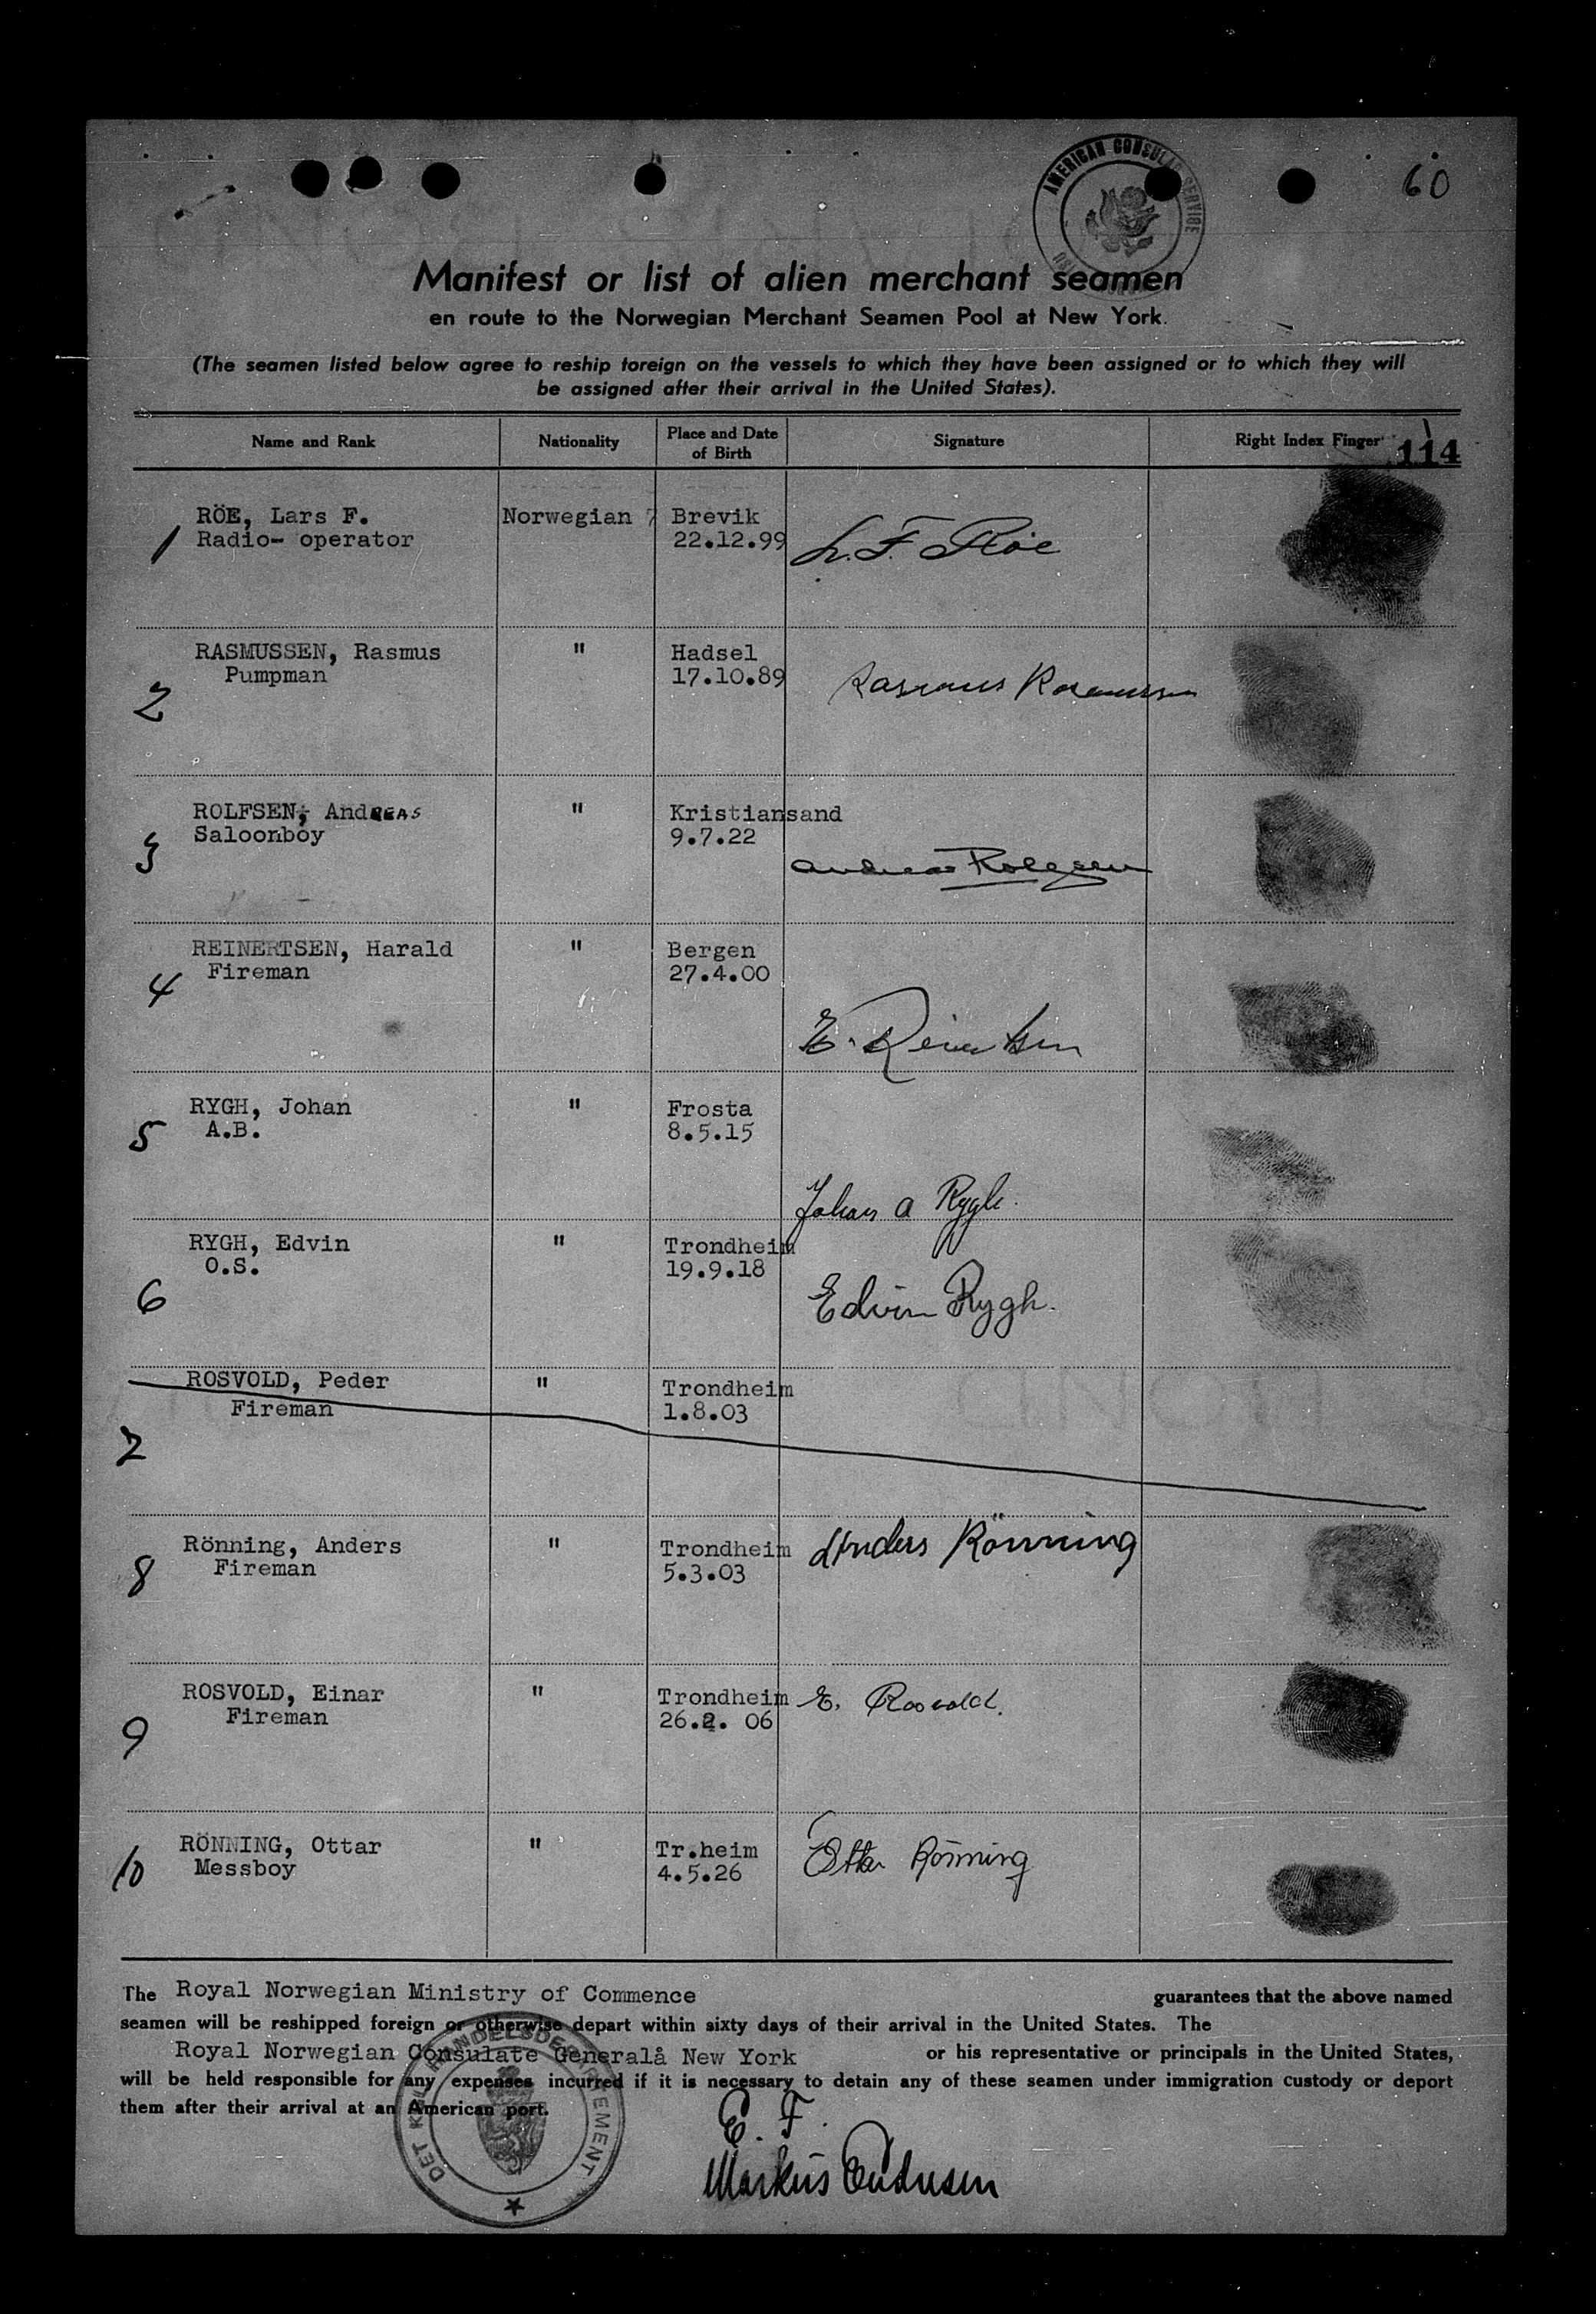 AMERICAN CONSULAR SERVICE
60
Manifest or list of alien merchant seamen
en route to the Norwegian Merchant Seamen Pool at New York.
(The seamen listed below agree to reship foreign on the vessels to which they have been assigned or to which they will
be assigned after their arrival in the United States).
Name and Rank Nationality Place and Date of Birth Signature Right Index Finger 114
RÖE, Lars F. Norwegian 7 Brevik
1 Radio- operator 22.12.99 L. F. Röe
RASMUSSEN, Rasmus " Hadsel
Pumpman 17.10.89
2 Rasmus Rasmussen
ROLFSEN, AndREAS " Kristiansand
Saloonboy 9.7.22
3 Andreas Rolfsen
REINERTSEN, Harald " Bergen
Fireman 27.4.00
4
H. Reinertsen
RYGH, Johan " Frosta
5 A.B. 8.5.15
Johan A Rygh.
RYGH, Edvin " Trondheim
O.S. 19.9.18
6 Edvin Rygh.
ROSVOLD, Peder " Trondheim
Fireman 1.8.03
7
Rönning, Anders " Trondheim Anders Rönning
8 Fireman 5.3.03
ROSVOLD, Einar " Trondheim E. Rosvold.
Fireman 26.2. 06
9
RÖNNING, Ottar " Tr.heim Ottar Rönning
10 Messboy 4.5.26
The Royal Norwegian Ministry of Commence guarantees that the above named
seamen will be reshipped foreign or otherwise depart within sixty days of their arrival in the United States. The
Royal Norwegian Consulate Generalå New York or his representative or principals in the United States,
will be held responsible for any expenses incurred if it is necessary to detain any of these seamen under immigration custody or deport
them after their arrival at an American port.
DET KGL. HANDELSDEPARTEMENT
E. F.
Markus